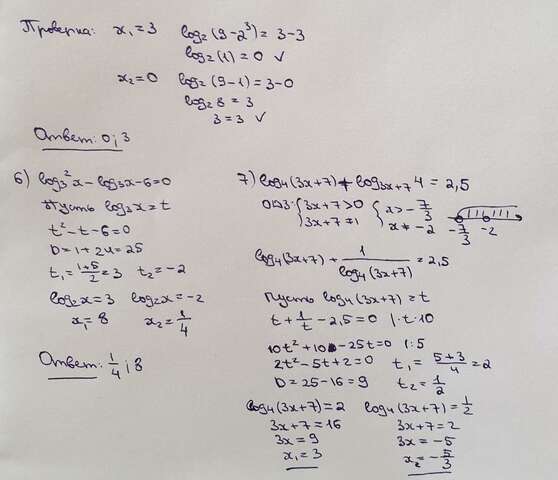 Проверка: x₁ = 3 log₂(9-2³) = 3-3
log₂(1) = 0 ✓
x₂ = 0 log₂(9-1) = 3-0
log₂8 = 3
3 = 3 ✓
Ответ: 0; 3
6) log₂²x - log₂x - 6 = 0
Пусть log₂x = t
t² - t - 6 = 0
D = 1 + 24 = 25
t₁ = (1+5)/2 = 3 t₂ = -2
log₂x = 3 log₂x = -2
x₁ = 8 x₂ = 1/4
Ответ: 1/4; 8
7) log₄(3x+7) + log₃ₓ₊₇4 = 2,5
ОДЗ: { 3x+7 > 0 { x > -7/3
3x+7 ≠ 1 x ≠ -2 -7/3 -2
log₄(3x+7) + 1/log₄(3x+7) = 2,5
Пусть log₄(3x+7) = t
t + 1/t - 2,5 = 0 |·t·10
10t² + 10 - 25t = 0 |:5
2t² - 5t + 2 = 0 t₁ = (5+3)/4 = 2
D = 25 - 16 = 9 t₂ = 1/2
log₄(3x+7) = 2 log₄(3x+7) = 1/2
3x+7 = 16 3x+7 = 2
3x = 9 3x = -5
x₁ = 3 x₂ = -5/3